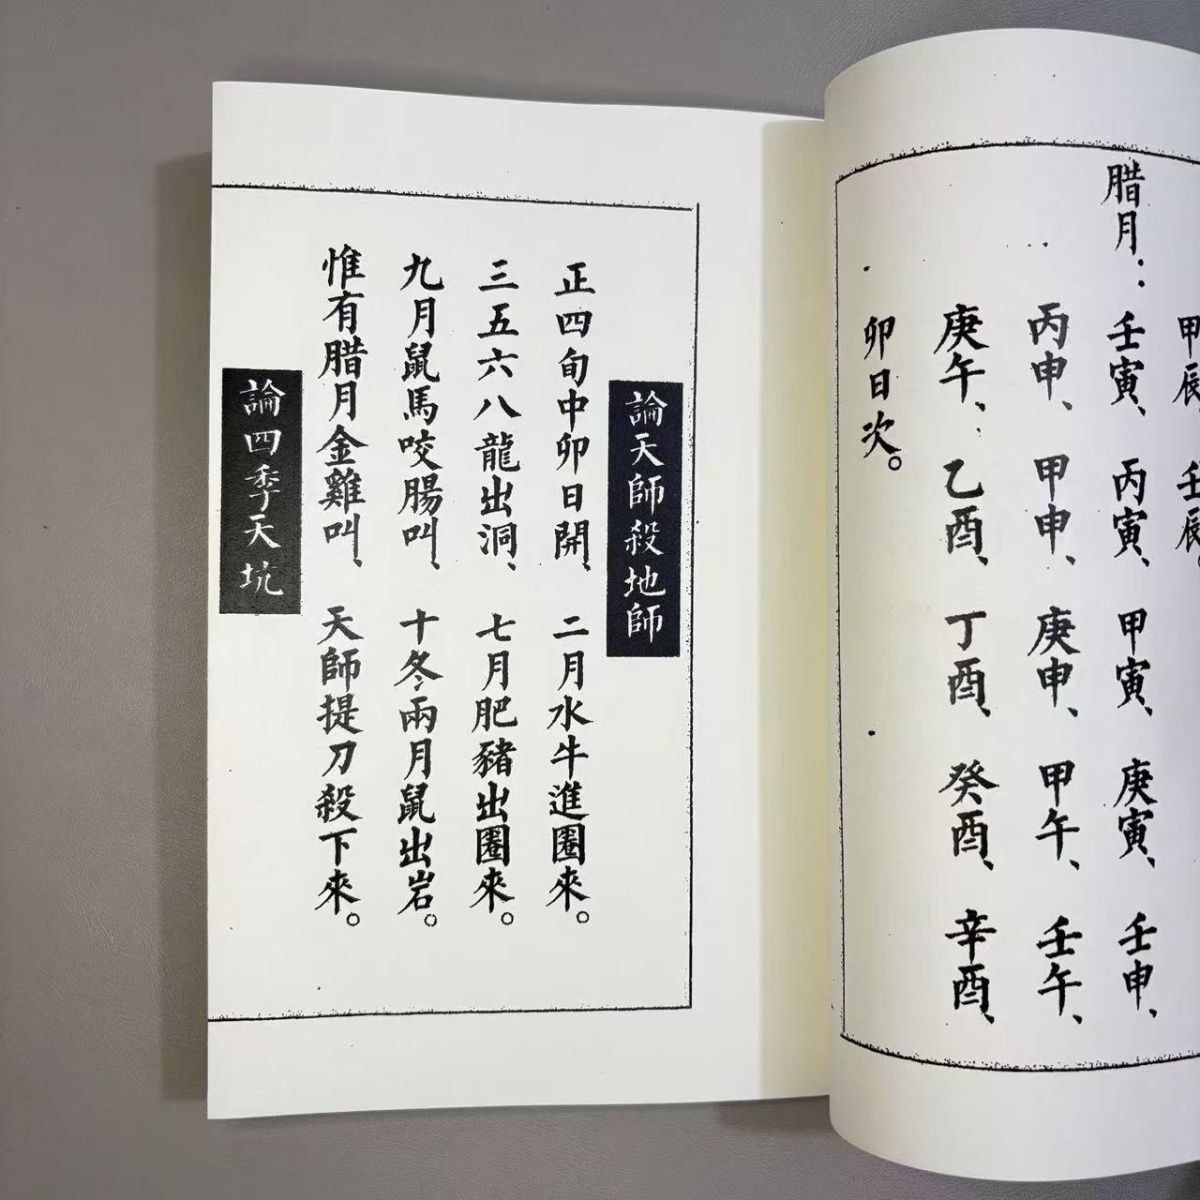 甲辰、壬辰。
腊月：壬寅、丙寅、甲寅、庚寅、壬申、
丙申、甲申、庚申、甲午、壬午、
庚午、乙酉、丁酉、癸酉、辛酉、
卯日次。
論天師殺地師
正四旬中卯日開、二月水牛進圈來。
三五六八龍出洞、七月肥豬出圈來。
九月鼠馬咬腸叫、十冬兩月鼠出岩。
惟有腊月金雞叫、天師提刀殺下來。
論四季天坑